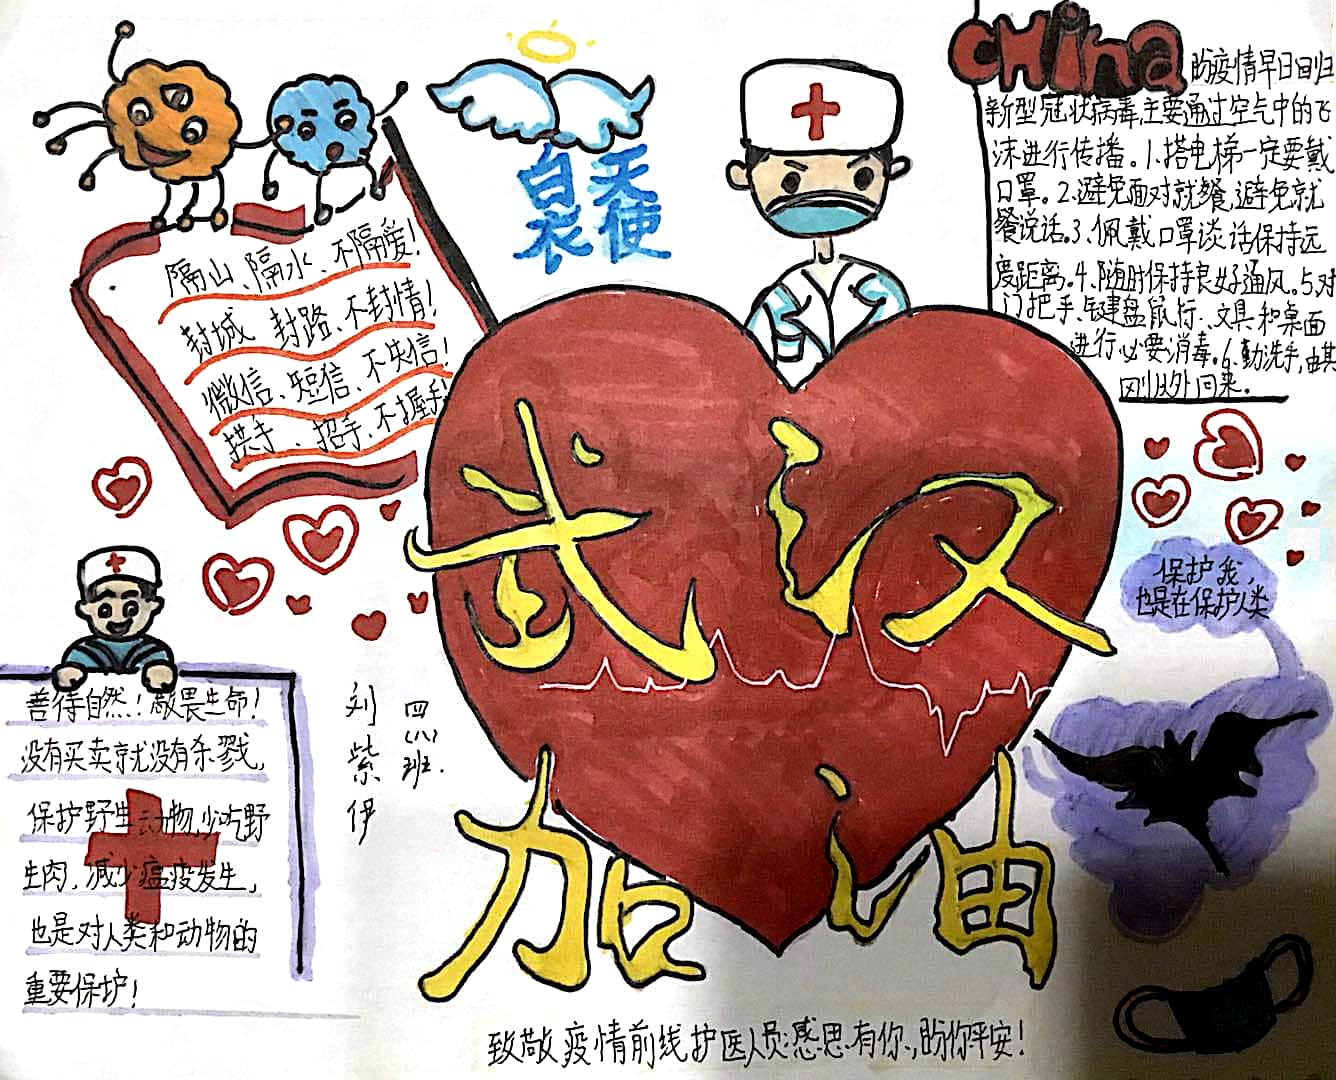 China 盼疫情早日回归
新型冠状病毒,主要通过空气中的飞
沫进行传播。1.搭电梯一定要戴
口罩。2.避免面对就餐,避免就
餐说话。3.佩戴口罩谈话保持远
度距离。4.随时保持良好通风。5.对
门把手、键盘鼠标、文具和桌面
进行必要消毒。6.勤洗手,尤其
刚从外回来。
白衣
天使
隔山、隔水、不隔爱!
封城、封路、不封情!
微信、短信、不失信!
拱手、招手、不握手!
武汉
加油
保护我,
也是在保护人类
善待自然!敬畏生命!
没有买卖就没有杀戮,
保护野生动物,少吃野
生肉,减少瘟疫发生,
也是对人类和动物的
重要保护!
四(八)班.
刘紫伊
致敬疫情前线护医人员:感恩有你,盼你平安!